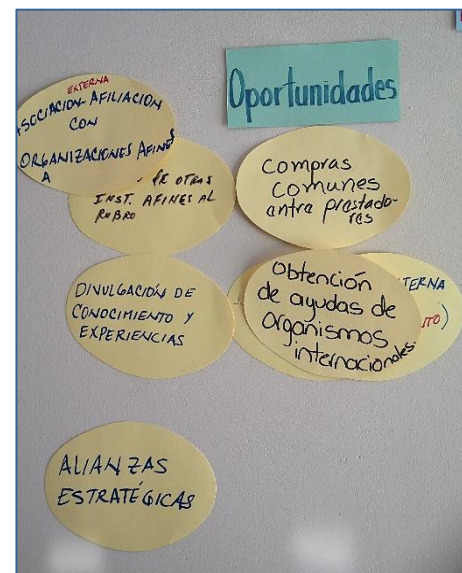 Oportunidades
EXTERNA
ASOCIACION AFILIACION
CON
ORGANIZACIONES AFINES
A
OTRAS
INST. AFINES AL
RUBRO
Compras
Comunes
entre prestado-
res
DIVULGACIÓN DE
CONOCIMIENTO Y
EXPERIENCIAS
Obtención
de ayudas de
Organismos
internacionales.
TERNA
ALIANZAS
ESTRATÉGICAS